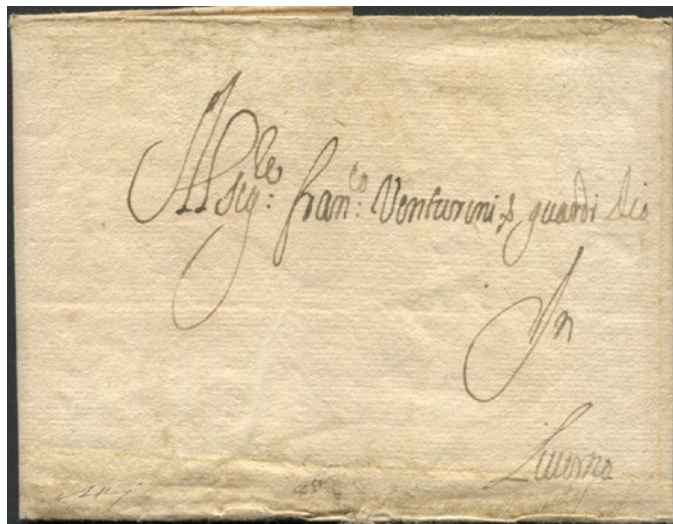 Al Sig.re Fran.co Venturini, guardi Dio
In
Livorno